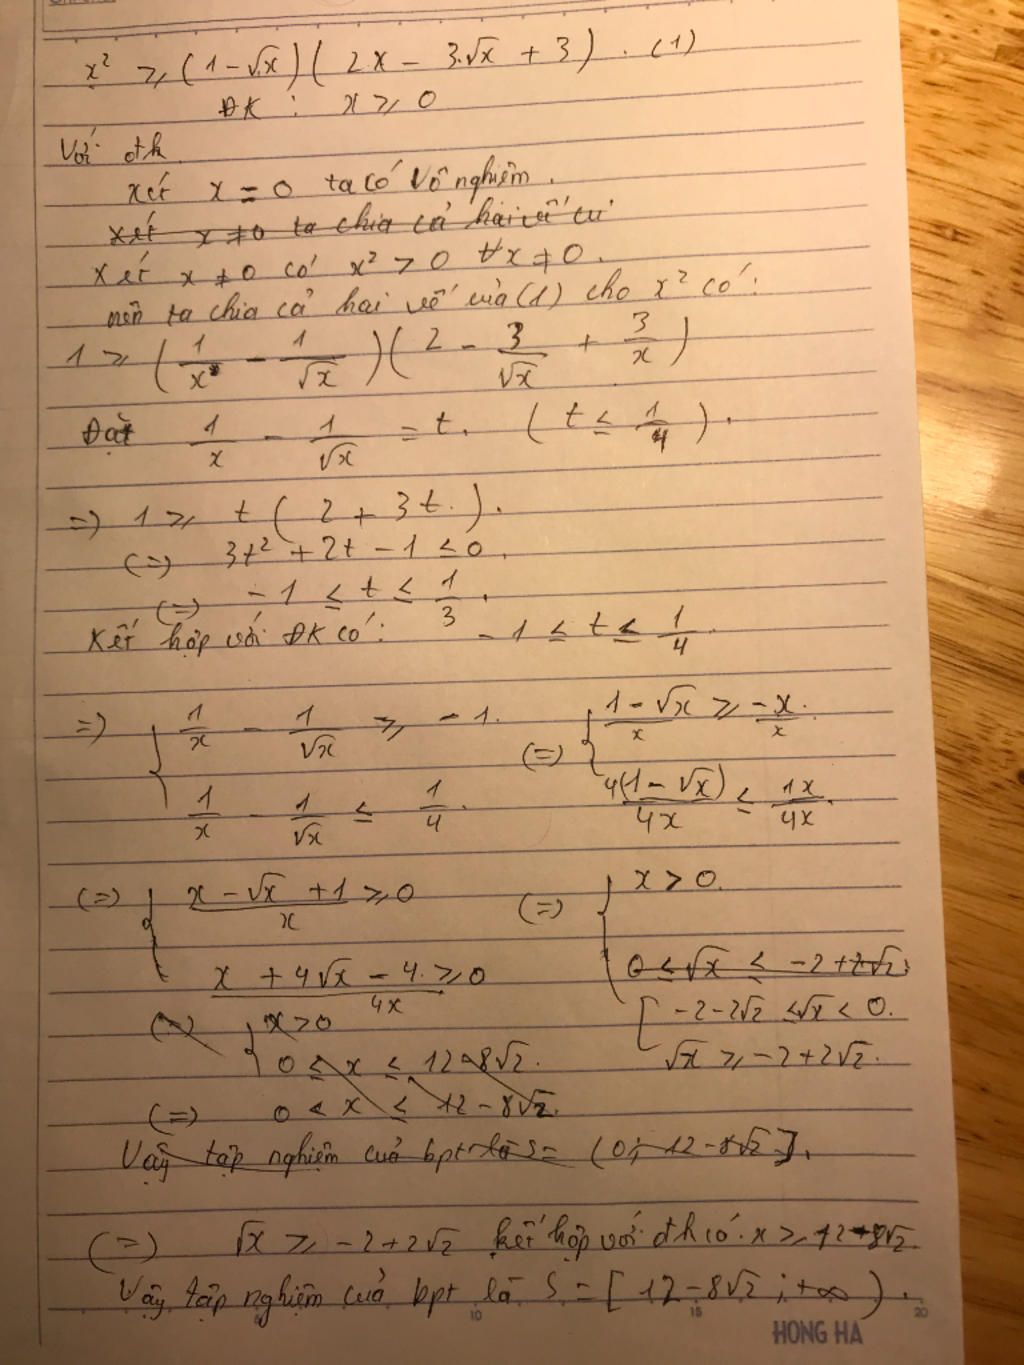 x² ≥ (1-√x)(2x - 3√x + 3). (1)
ĐK : x ≥ 0
Với đk
xét x = 0 ta có Vô nghiệm.
xét x ≠ 0 ta chia cả hai vế cu
Xét x ≠ 0 có x² > 0 ∀x ≠ 0.
nên ta chia cả hai vế của (1) cho x² có:
1 ≥ (1/x - 1/√x)(2 - 3/√x + 3/x)
Đặt 1/x - 1/√x = t. (t ≤ 1/4).
=> 1 ≥ t(2 + 3t.).
(=) 3t² + 2t - 1 ≤ 0.
(=) -1 ≤ t ≤ 1/3.
Kết hợp với ĐK có: -1 ≤ t ≤ 1/4.
=> { 1/x - 1/√x ≥ -1. (=) { (1-√x)/x ≥ -x/x.
1/x - 1/√x ≤ 1/4. 4(1-√x)/4x ≤ 1x/4x.
(=) { (x - √x + 1)/x ≥ 0 (=) { x > 0.
(x + 4√x - 4)/4x ≥ 0 0 ≤ √x ≤ -2+2√2.
(=) { x > 0 [ -2-2√2 ≤ √x < 0.
0 ≤ x ≤ 12-8√2. √x ≥ -2+2√2.
(=) 0 < x ≤ 12-8√2.
Vậy tập nghiệm của bpt là S = (0; 12-8√2].
(=) √x ≥ -2+2√2 kết hợp với đk có x ≥ 12-8√2
Vậy tập nghiệm của bpt là S = [12-8√2; +∞).
10 15 20
HONG HA